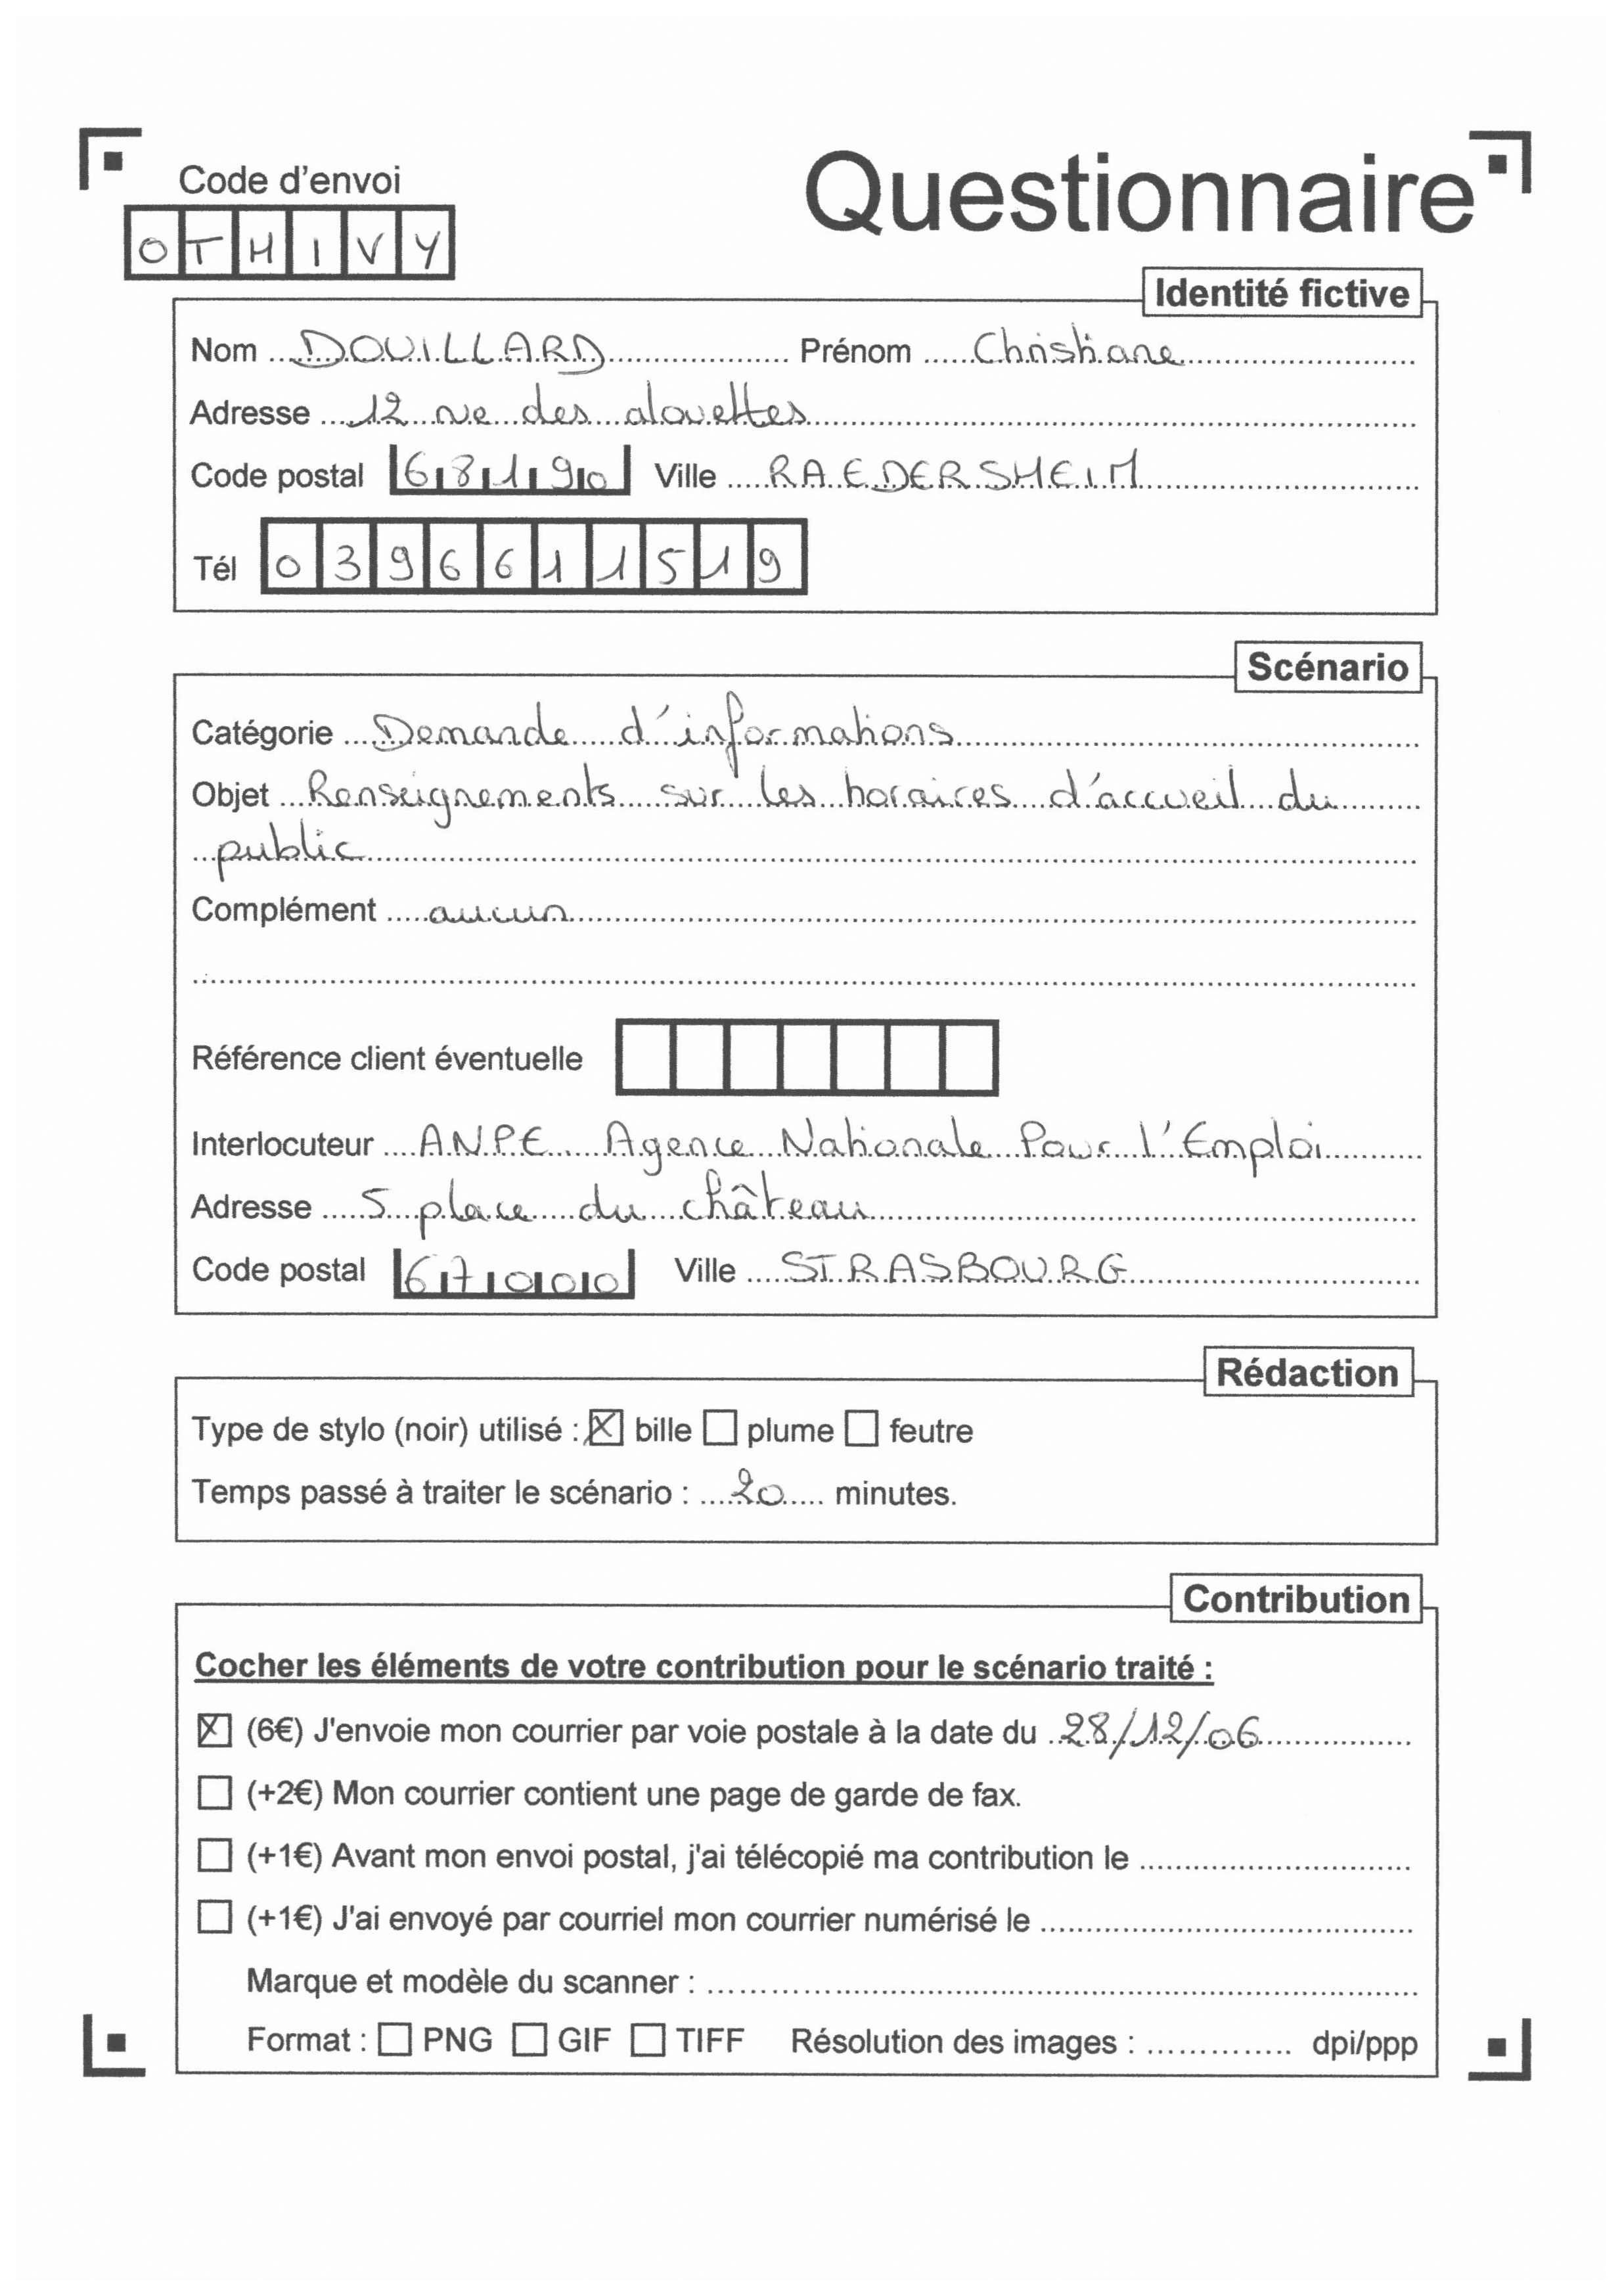 Code d'envoi
Questionnaire
OTHIVY
Identité fictive
Nom DOUILLARD Prénom Christiane
Adresse 12 rue des alouettes
Code postal 68190 Ville RAEDERSHEIM
Tél 0396611519
Scénario
Catégorie Demande d'informations
Objet Renseignements sur les horaires d'accueil du
public
Complément aucun
Référence client éventuelle
Interlocuteur ANPE Agence Nationale Pour l'Emploi
Adresse 5 place du château
Code postal 67000 Ville STRASBOURG
Rédaction
Type de stylo (noir) utilisé : bille plume feutre
Temps passé à traiter le scénario : 20 minutes.
Contribution
Cocher les éléments de votre contribution pour le scénario traité :
(6€) J'envoie mon courrier par voie postale à la date du 28/12/06
(+2€) Mon courrier contient une page de garde de fax.
(+1€) Avant mon envoi postal, j'ai télécopié ma contribution le
(+1€) J'ai envoyé par courriel mon courrier numérisé le
Marque et modèle du scanner :
Format : PNG GIF TIFF Résolution des images : dpi/ppp